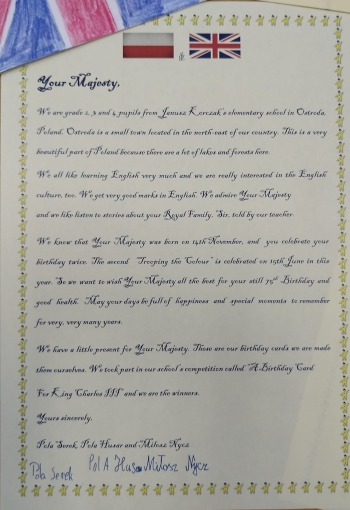 &
Your Majesty,
We are grade 2, 3 and 4 pupils from Janusz Korczak's elementary school in Ostroda,
Poland. Ostroda is a small town located in the north-east of our country. This is a very
beautiful part of Poland because there are a lot of lakes and forests here.
We all like learning English very much and we are really interested in the English
culture, too. We get very good marks in English. We admire Your Majesty
and we like listen to stories about your Royal Family, Sir, told by our teacher.
We know that Your Majesty was born on 14th November, and you celebrate your
birthday twice. The second "Trooping the Colour" is celebrated on 15th June in this
year. So we want to wish Your Majesty all the best for your still 75th Birthday and
good health. May your days be full of happiness and special moments to remember
for very, very many years.
We have a little present for Your Majesty. Those are our birthday cards we are made
them ourselves. We took part in our school's competition called "A Birthday Card
For King Charles III" and we are the winners.
Yours sincerely,
Pola Serek, Pola Husar and Milosz Nycz
Pola Serek Miłosz Nycz